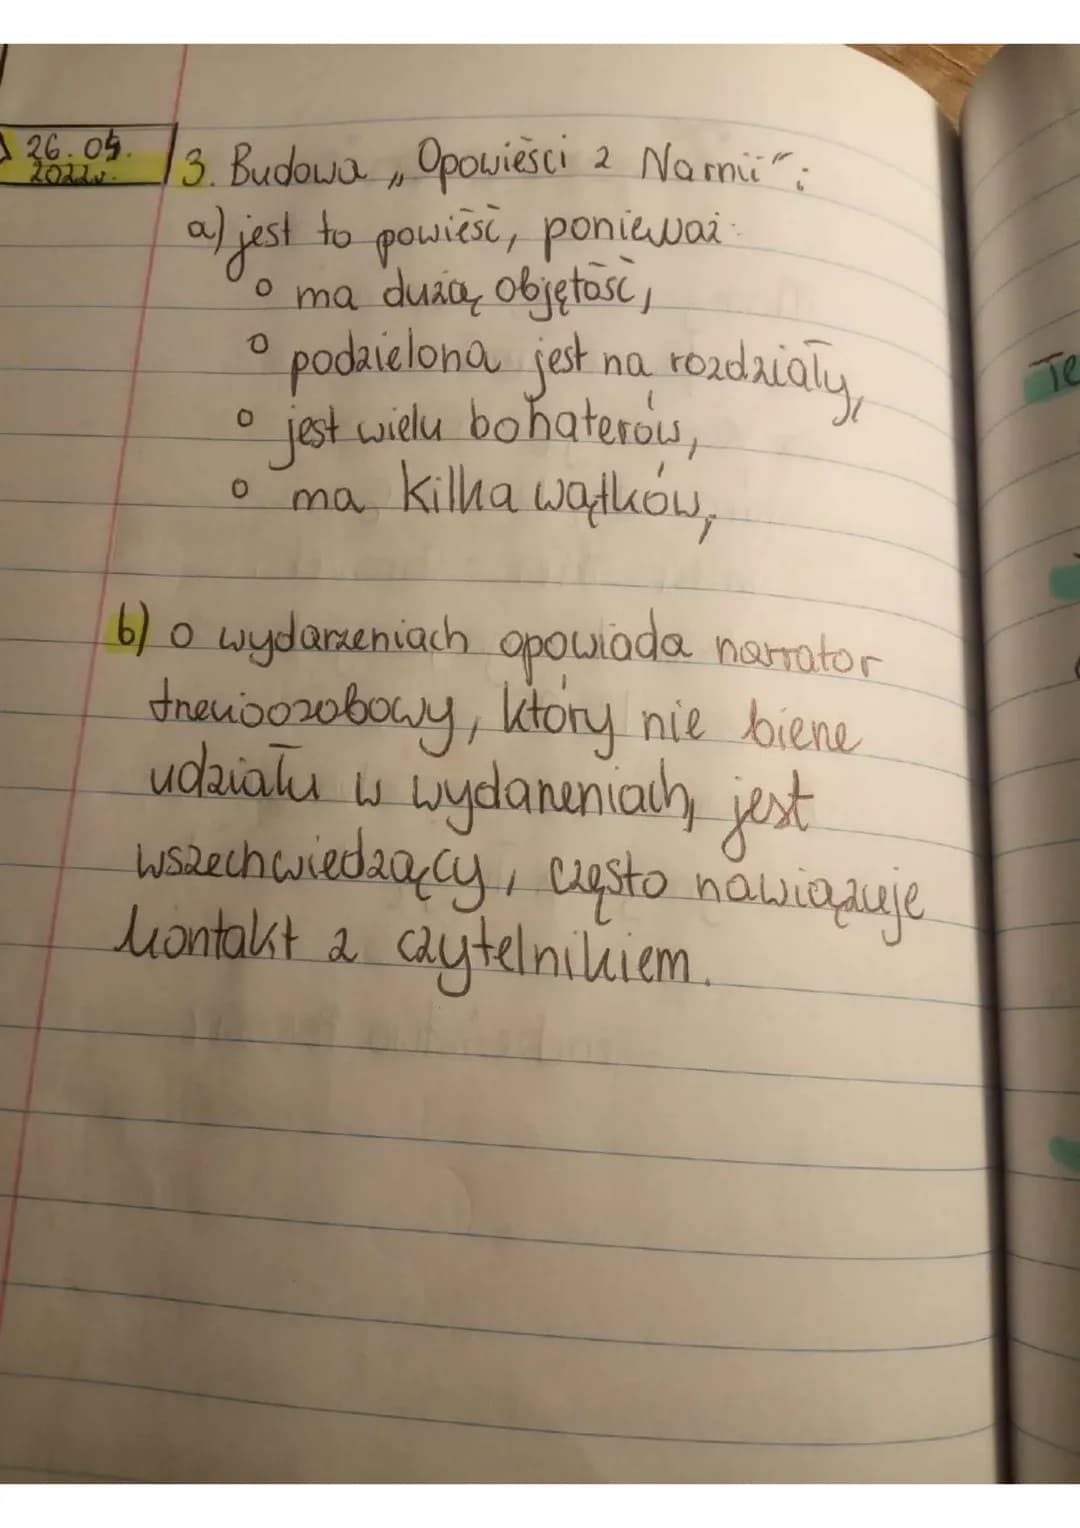 26.05.
2022r.
3. Budowa „Opowieści z Narnii":
a) jest to powieść, ponieważ:
o ma dużą objętość,
o podzielona jest na rozdziały,
o jest wielu bohaterów,
o ma kilka wątków,
b) o wydarzeniach opowiada narrator
trzecioozobowy, który nie bierze
udziału w wydarzeniach, jest
wszechwiedzący, często nawiązuje
kontakt z czytelnikiem.
Te